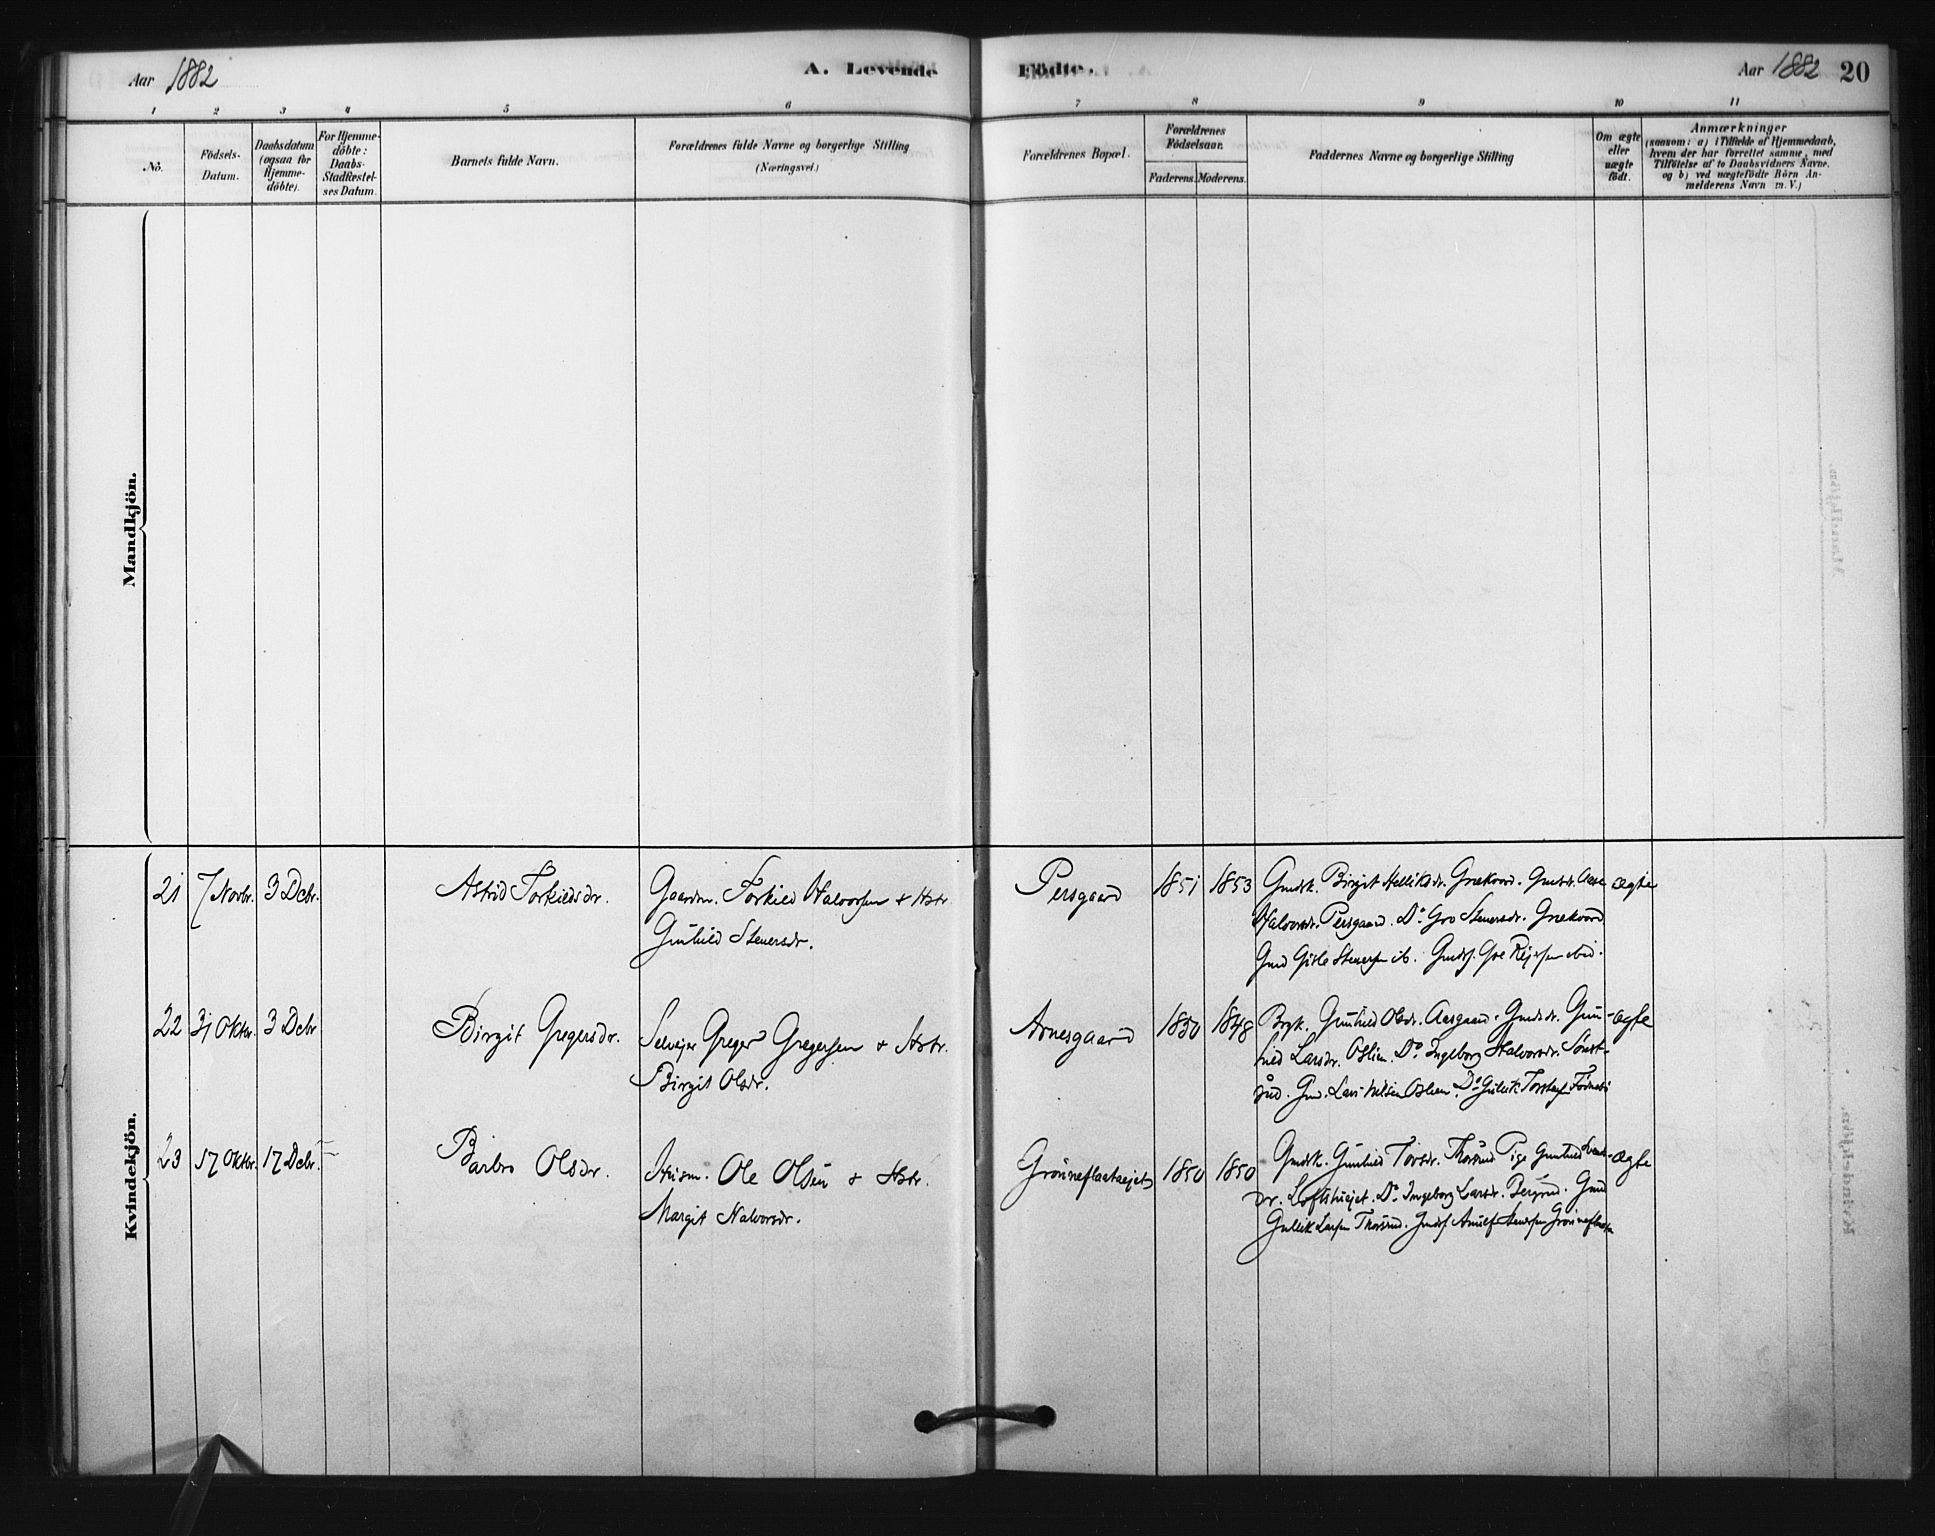 Aar 1882
A. Levende
1 2 3 4 5 6
No.
Födsels-Datum.
Daabsdatum (ogsaa for Hjemme-döbte).
For Hjemme-döbte: Daabs-Stadfæstel-ses Datum.
Barnets fulde Navn.
Forældrenes fulde Navne og borgerlige Stilling
(Næringsvei.)
Mandkjön.
Kvindekjön.
21 7 Novbr. 3 Dcbr. Astrid Torkildsdr. Gaardm. Torkild Halvorsen & Hstr.
Gunhild Steversdr.
22 31 Oktbr. 3 Dcbr Birgit Gregersdr. Selveier Greger Gregersen & Hstr.
Birgit Olsdr.
23 17 Oktbr. 17 Dcbr. Barbro Olsdr. Husm. Ole Olsen & Hstr.
Margit Halvorsdr.
Födte.
Aar 1882 20
7 8 9 10 11
Forældrenes Bopæl.
Forældrenes Födselsaar.
Faderens. Moderens.
Faddernes Navne og borgerlige Stilling
Om ægte eller uægte födt.
Anmærkninger
(saasom: a) i Tilfælde af Hjemmedaab,
hvem der har forrettet samme, med
Tilföielse af to Daabsvidners Navne,
og b) ved uægtefödte Börn An-
melderens Navn m.V.)
Persgaard 1851 1853 Gmdsk. Birgit Helliksdr. Gmdsdr. Aase ægte
Halvorsdr. Persgaard. Do. Gro Steversdr.
Gmd Gisle Steversen ib. Gmdss.
Arnesgaard 1850 1848 Brgk. Gunhild Olsdr. Aasgaard. Gmdsdr. Gun- ægte
hild Larsdr. Oslien. Do. Ingeborg Halvorsdr.
rud. Gmd. Lars Nilsen Oslien. Do. Gullik Torstensen
Grönneflaataejet 1850 1850 Gmdsk. Gunhild Torsdr. Thorsrud Pige Gunhild ægte
dr. Loftshusejet. Do. Ingeborg Larsdr. Gmd
Gullik Larsen Thorsrud. Gmdss Steversen Grönneflaata